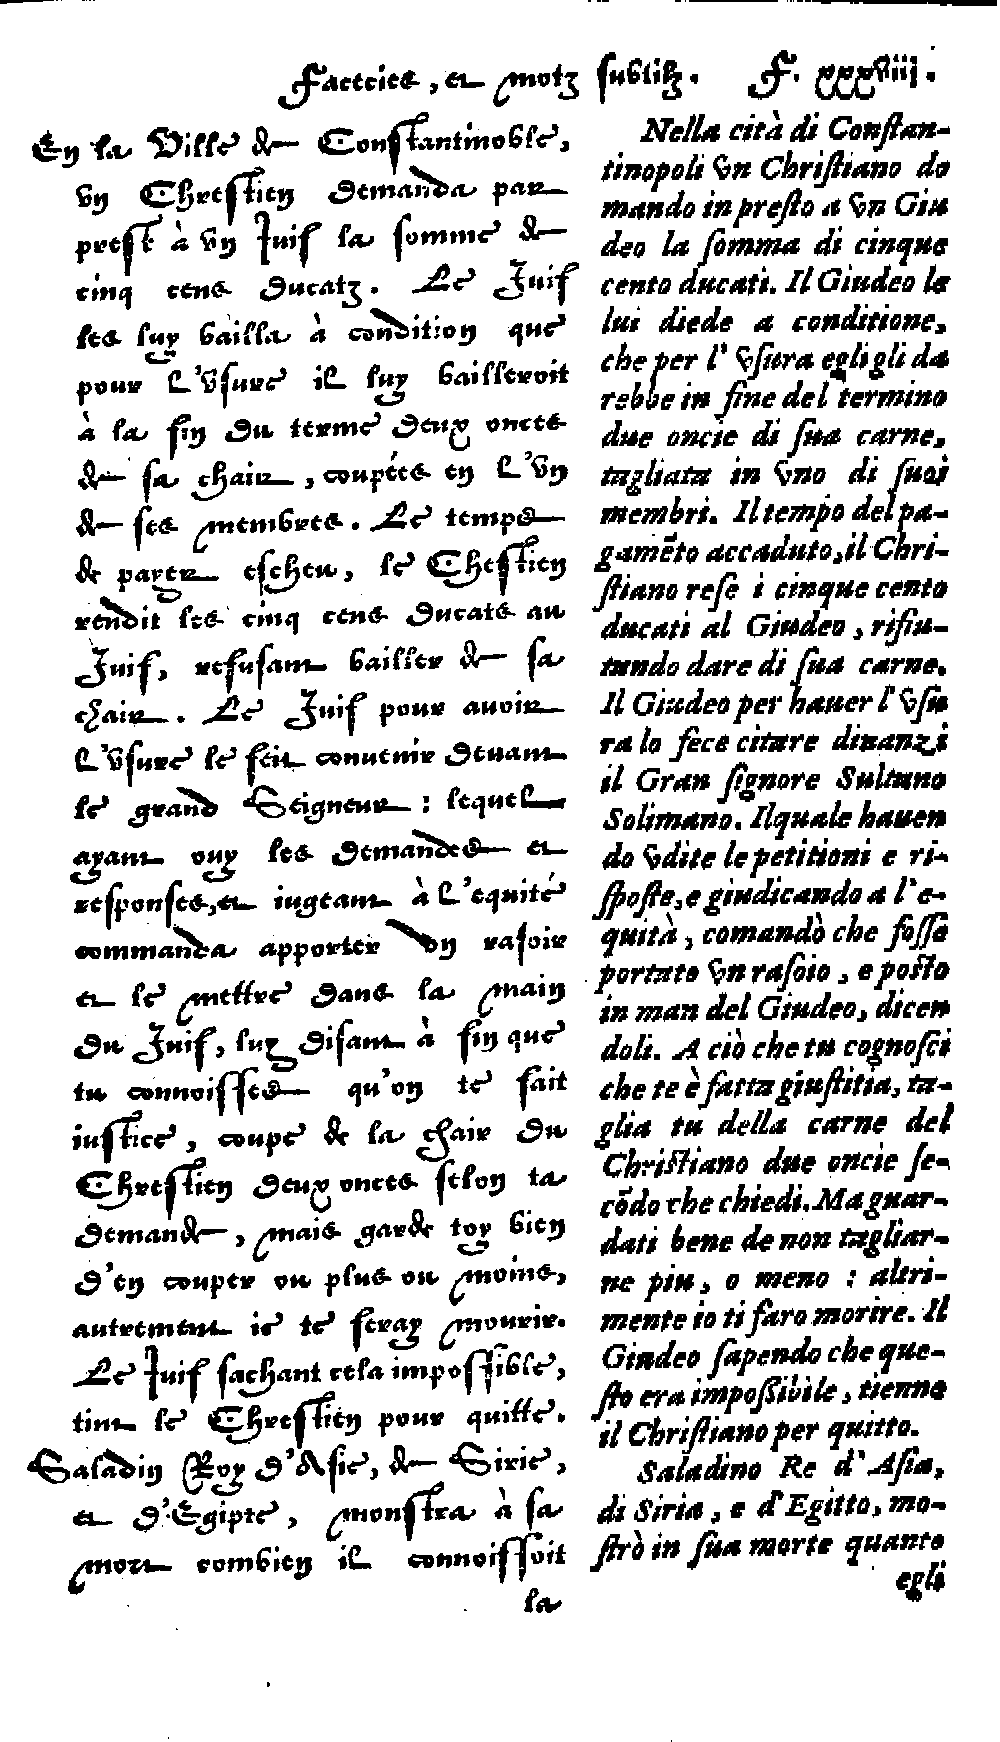 Facecies, et motz subtilz. F. xxxviij.
En la Ville de Constantinoble,
vn Chrestien demanda par
prest à vn Juif la somme de
cinq cens ducatz. Le Juif
les luy bailla à condition que
pour l'vsure il luy bailleroit
à la fin du terme deux onces
de sa chair, coupées en l'vn
de ses membres. Le temps
de payer escheu, le Chestien
rendit les cinq cens ducats au
Juif, refusant bailler de sa
chair. Le Juif pour auoir
l'vsure le feit conuenir deuant
le grand Seigneur: lequel
ayant ouy les demandes et
responses, et iugeant à l'equité
commanda apporter vn rasoir
et le mettre dans la main
du Juif, luy disant à fin que
tu connoisses qu'on te fait
iustice, coupe de la chair du
Chrestien deux onces selon ta
demande, mais garde toy bien
d'en couper ou plus ou moins,
autrement ie te feray mourir.
Le Juif sachant cela impossible,
tint le Chrestien pour quitte.
Saladin Roy d'Asie, de Sirie,
et d'Egipte, monstra à sa
mort combien il connoissoit
la
Nella cità di Constan-
tinopoli vn Christiano do
mando in presto a vn Giu
deo la somma di cinque
cento ducati. Il Giudeo le
lui diede a conditione,
che per l'vsura egli gli da
rebbe in fine del termino
due oncie di sua carne,
tagliata in vno di suoi
membri. Il tempo del pa-
gamẽto accaduto, il Chri-
stiano rese i cinque cento
ducati al Giudeo, rifiu-
tando dare di sua carne.
Il Giudeo per hauer l'vsu
ra lo fece citare dinanzi
il Gran signore Sultano
Solimano. Il quale hauen
do vdite le petitioni e ri-
sposte, e giudicando a l'e-
quità, comandò che fosse
portato vn rasoio, e posto
in man del Giudeo, dicen
doli. A ciò che tu cognosci
che te è fatta giustitia, ta-
glia tu della carne del
Christiano due oncie se-
cõdo che chiedi. Ma guar-
dati bene de non tagliar-
ne piu, o meno: altri-
mente io ti faro morire. Il
Giudeo sapendo che que-
sto era impossibile, tienne
il Christiano per quitto.
Saladino Re d'Asia,
di Siria, e d'Egitto, mo-
strò in sua morte quanto
egli